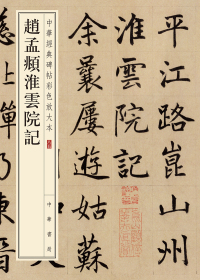 中華經典碑帖彩色放大本
趙孟頫淮雲院記
中華書局
平江路崑山州
淮雲院記
余曩屢遊姑蘇